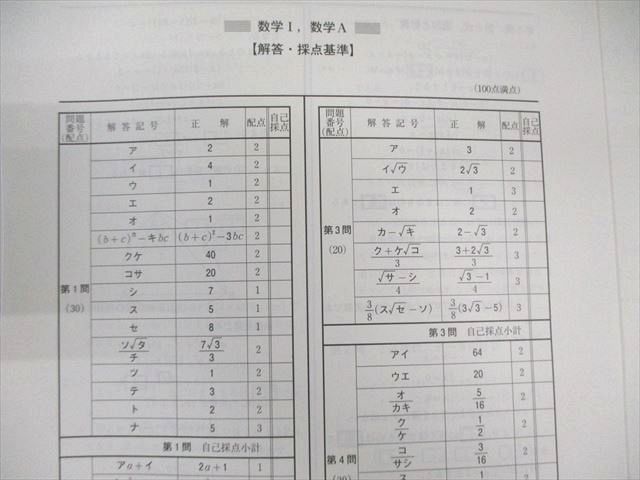 数学Ⅰ，数学A
【解答・採点基準】
(100点満点)
問題番号(配点) 解答記号 正解 配点 自己採点
第1問 (30)
ア 2 2
イ 4 2
ウ 1 2
エ 2 2
オ 1 2
(b+c)^カ−キbc (b+c)²−3bc 2
クケ 40 2
コサ 20 2
シ 7 1
ス 5 1
セ 8 1
ソ√タ/チ 7√3/3 2
ツ 1 2
テ 3 2
ト 2 2
ナ 5 3
第1問 自己採点小計
アa+イ 2a+1 1
問題番号(配点) 解答記号 正解 配点 自己採点
第3問 (20)
ア 3 2
イ√ウ 2√3 2
エ 1 3
オ 2 2
カ−√キ 2−√3 2
ク+ケ√コ/3 3+2√3/3 3
√サ−シ/4 √3−1/4 3
3/8(ス√セ−ソ) 3/8(3√3−5) 3
第3問 自己採点小計
第4問
アイ 64 2
ウエ 20 2
オ/カキ 5/16 2
ク/ケ 1/2 2
コ/サシ 3/16 2
ス 1